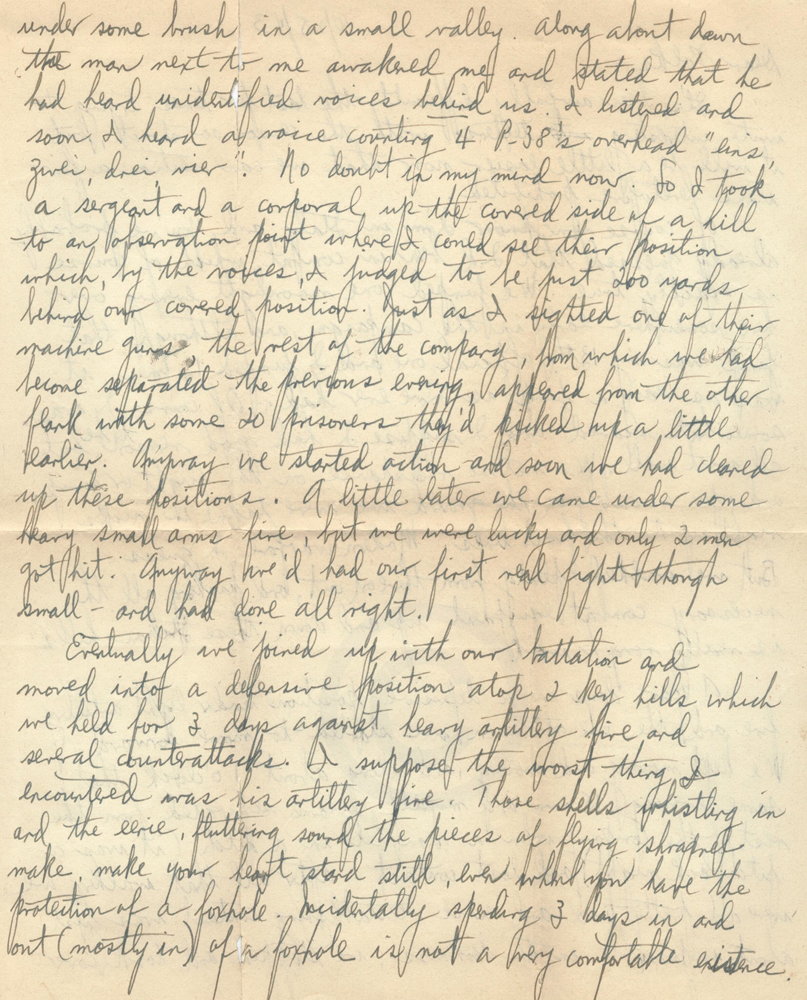 under some brush in a small valley. Along about dawn
the man next to me awakened me and stated that he
had heard unidentified voices behind us. I listened and
soon I heard a voice counting 4 P-38's overhead "eins,
zwei, drei, vier". No doubt in my mind now. So I took
a sergeant and a corporal up the covered side of a hill
to an observation point where I could see their position
which, by the voices, I judged to be just 200 yards
behind our covered position. Just as I sighted one of their
machine guns, the rest of the company, from which we had
become separated the previous evening, appeared from the other
flank with some 20 prisoners they'd picked up a little
earlier. Anyway we started action and soon we had cleared
up these positions. A little later we came under some
heavy small arms fire, but we were lucky and only 2 men
got hit. Anyway we'd had our first real fight though
small - and had done all right.
Eventually we joined up with our battalion and
moved into a defensive position atop 2 key hills which
we held for 3 days against heavy artillery fire and
several counterattacks. I suppose the worst thing I
encountered was his artillery fire. Those shells whistling in
and the eerie, fluttering sound the pieces of flying shrapnel
make, make your heart stand still, even when you have the
protection of a foxhole. Incidentally spending 3 days in and
out (mostly in) of a foxhole is not a very comfortable existence.